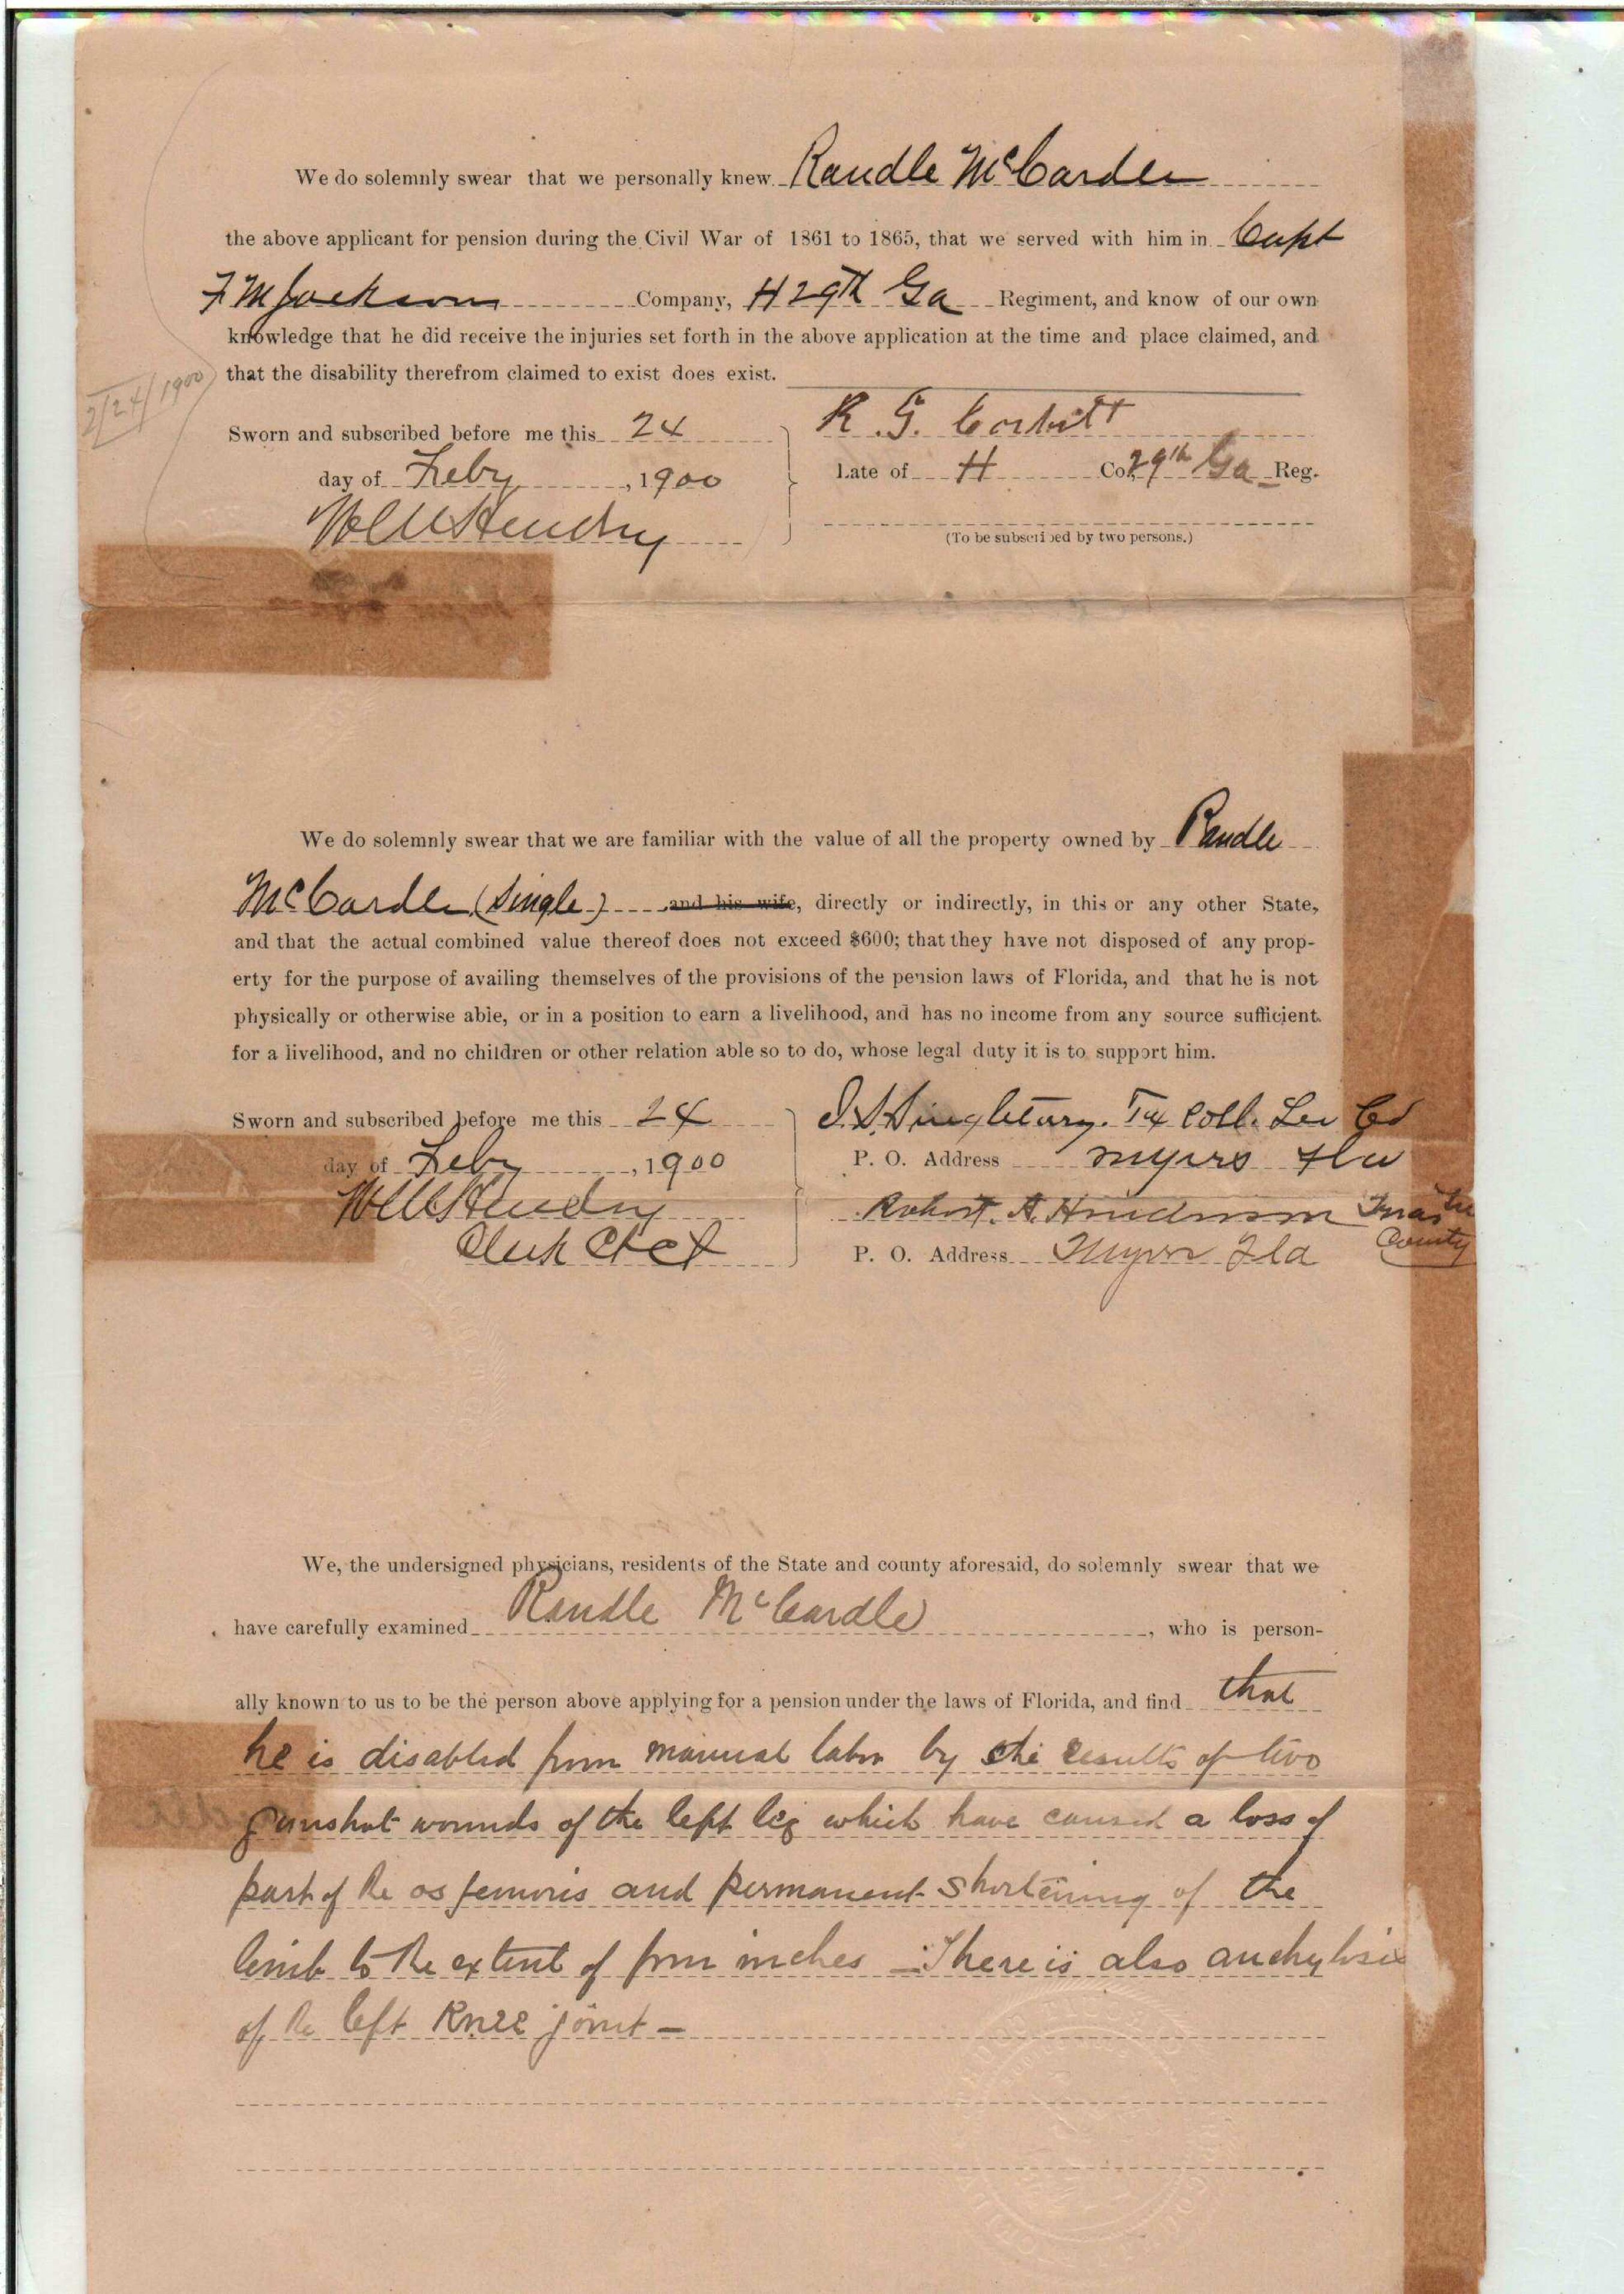 We do solemnly swear that we personally knew Randle McCardle
the above applicant for pension during the Civil War of 1861 to 1865, that we served with him in Capt
F M Jackson Company, H 29th Ga Regiment, and know of our own
knowledge that he did receive the injuries set forth in the above application at the time and place claimed, and
that the disability therefrom claimed to exist does exist.
2/24/1900
Sworn and subscribed before me this 24
day of Feby, 1900
R. G. Corbitt
Late of H Co, 29th Ga Reg.
Hendry
(To be subscribed by two persons.)
We do solemnly swear that we are familiar with the value of all the property owned by Randle
McCardle (Single) and his wife, directly or indirectly, in this or any other State,
and that the actual combined value thereof does not exceed $600; that they have not disposed of any prop-
erty for the purpose of availing themselves of the provisions of the pension laws of Florida, and that he is not
physically or otherwise able, or in a position to earn a livelihood, and has no income from any source sufficient
for a livelihood, and no children or other relation able so to do, whose legal duty it is to support him.
Sworn and subscribed before me this 24
day of Feby, 1900
Hendry
Clerk Ct Ct
Singletary. Tx Coll. Lee Co
P. O. Address Myers Fla
Robert. A. Henderson County
P. O. Address Myers Fla
We, the undersigned physicians, residents of the State and county aforesaid, do solemnly swear that we
have carefully examined Randle McCardle, who is person-
ally known to us to be the person above applying for a pension under the laws of Florida, and find that
he is disabled from manual labor by the results of two
gunshot wounds of the left leg which have caused a loss of
part of the os femoris and permanent shortening of the
limb to the extent of four inches - There is also anchylosis
of the left Knee joint -